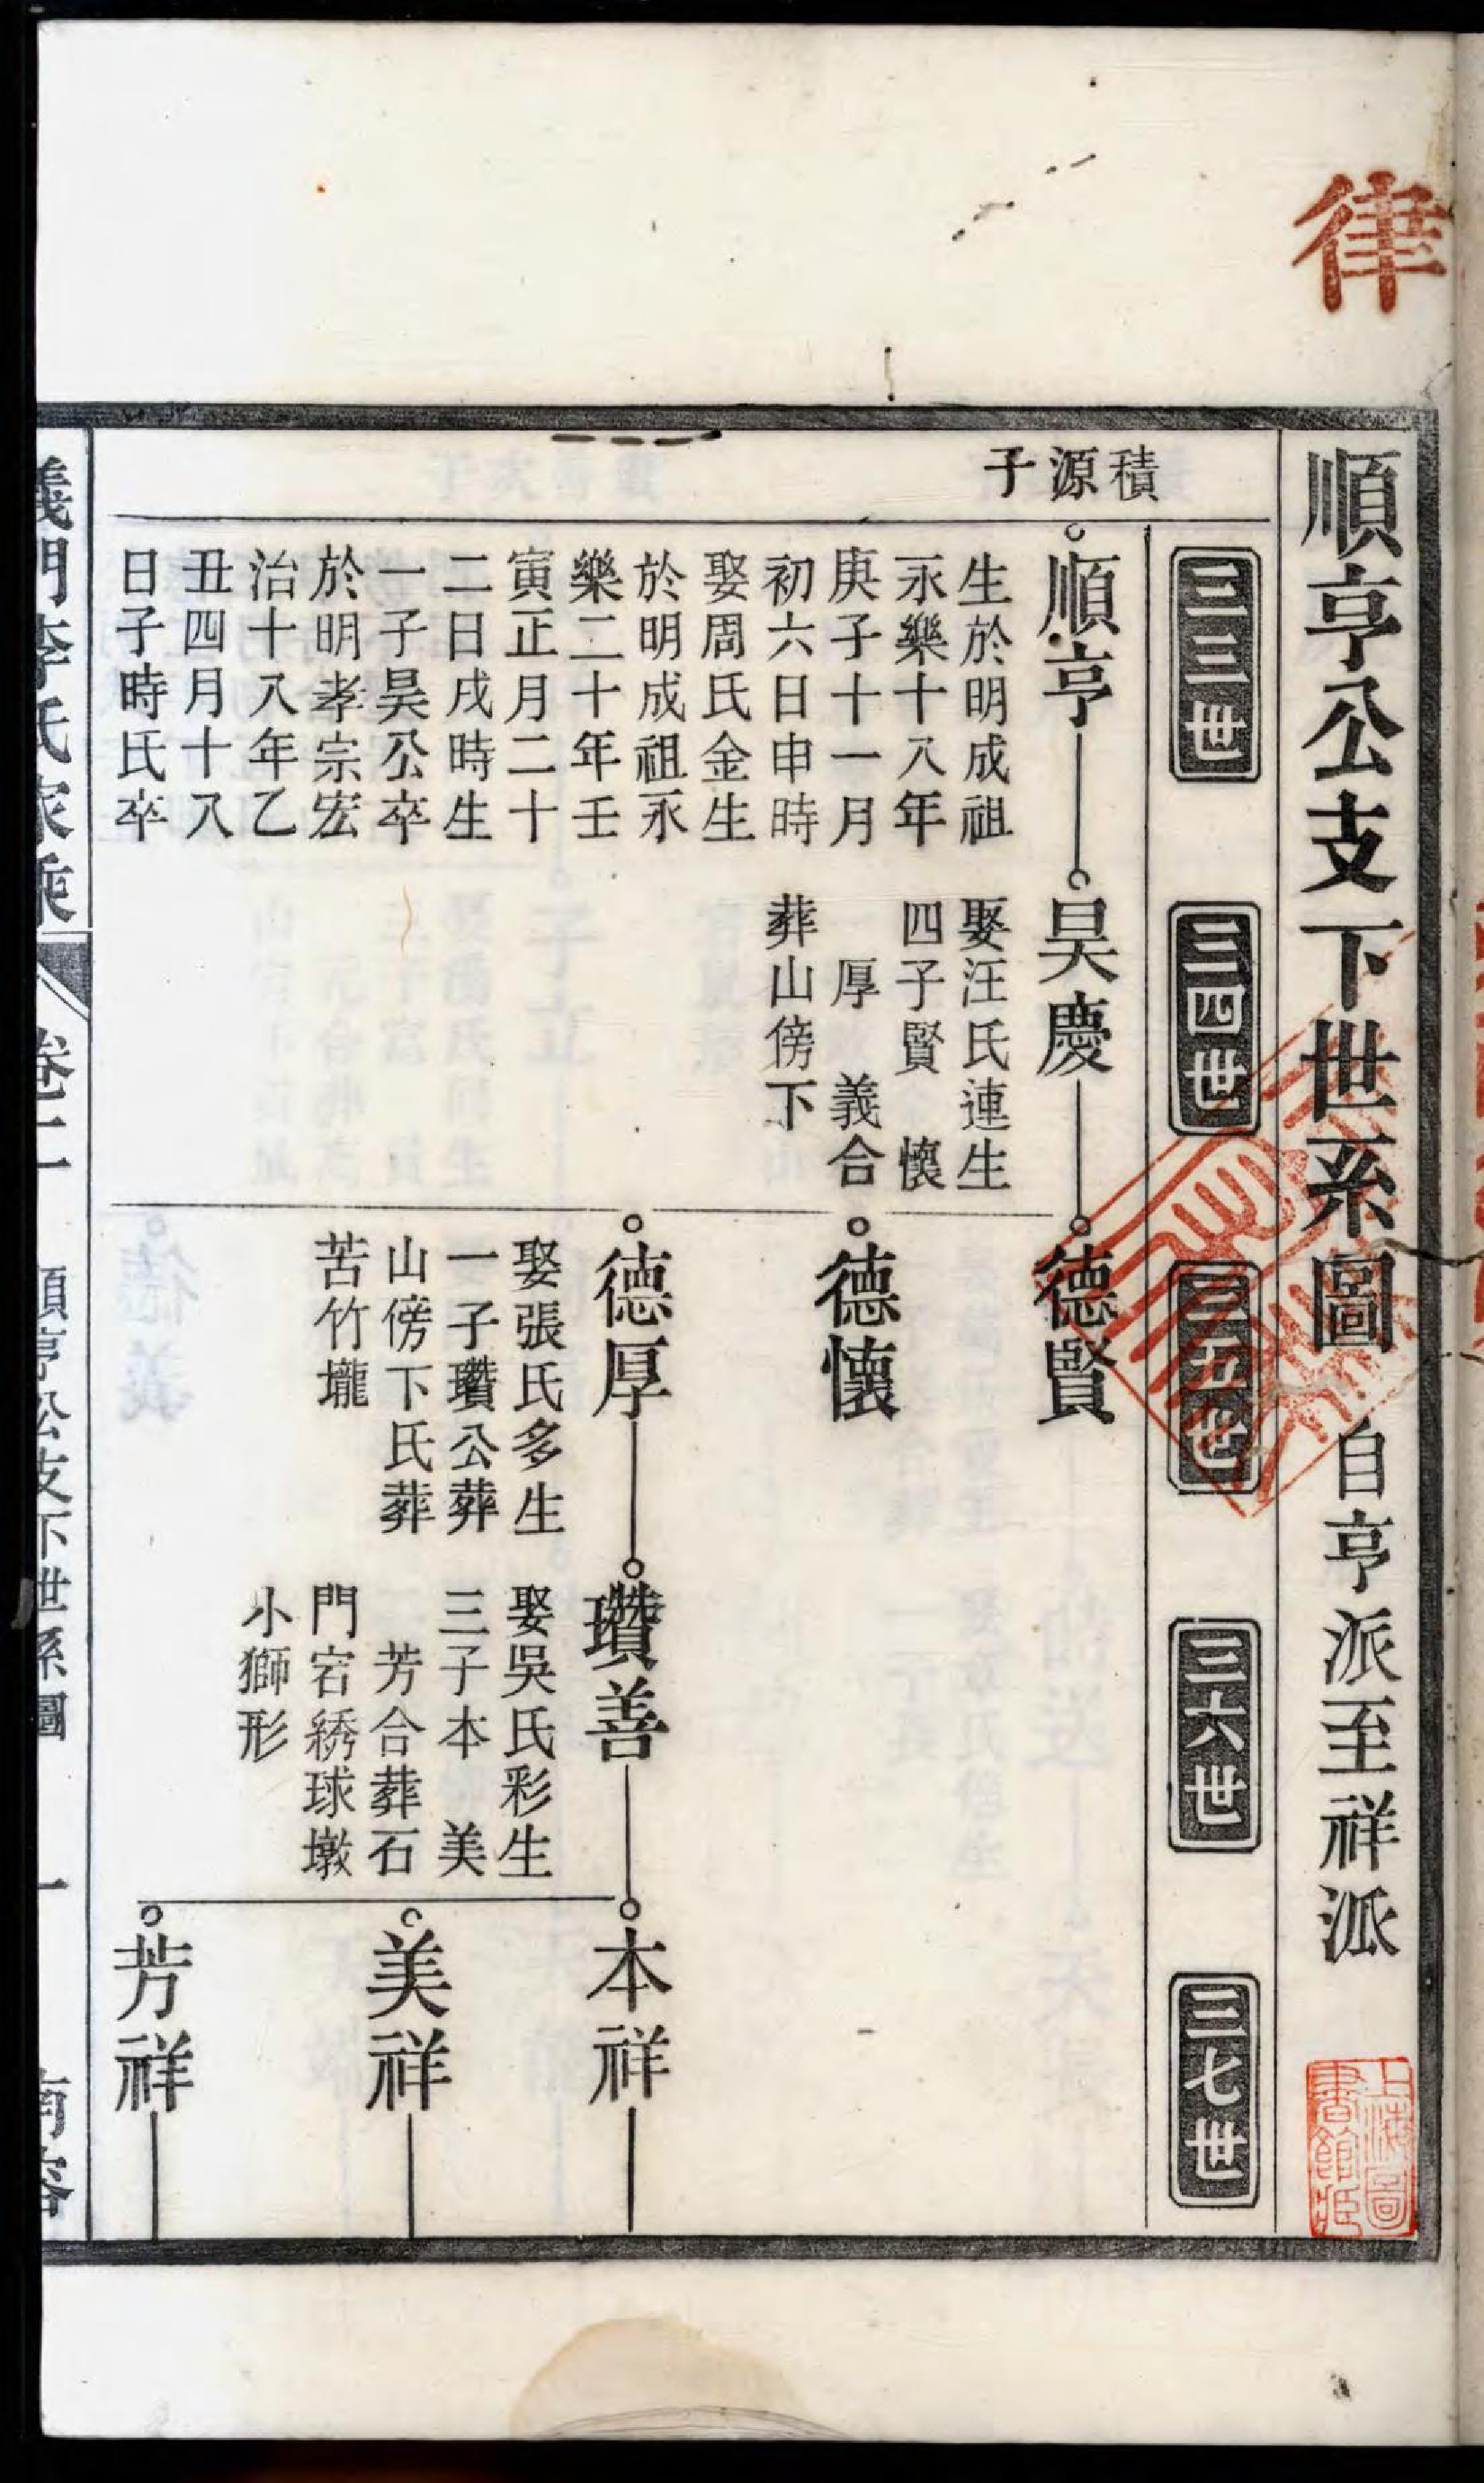 律
順亨公支下世系圖 自亨派至祥派
上海圖
書館藏
三三世
三四世
三五世
三六世
三七世
積源子
順亨
生於明成祖
永樂十八年
庚子十一月
初六日申時
娶周氏金生
於明成祖永
樂二十年壬
寅正月二十
二日戌時生
一子昊公卒
於明孝宗宏
治十八年乙
丑四月十八
日子時氏卒
昊慶
娶汪氏連生
四子賢 懷
厚 義合
葬山傍下
德賢
德懷
德厚
娶張氏多生
一子瓚公葬
山傍下氏葬
苦竹壠
瓚善
娶吳氏彩生
三子本 美
芳合葬石
門宕綉球墩
小獅形
本祥
美祥
芳祥
義門李氏家乘 卷二 順亨公支下世系圖 一